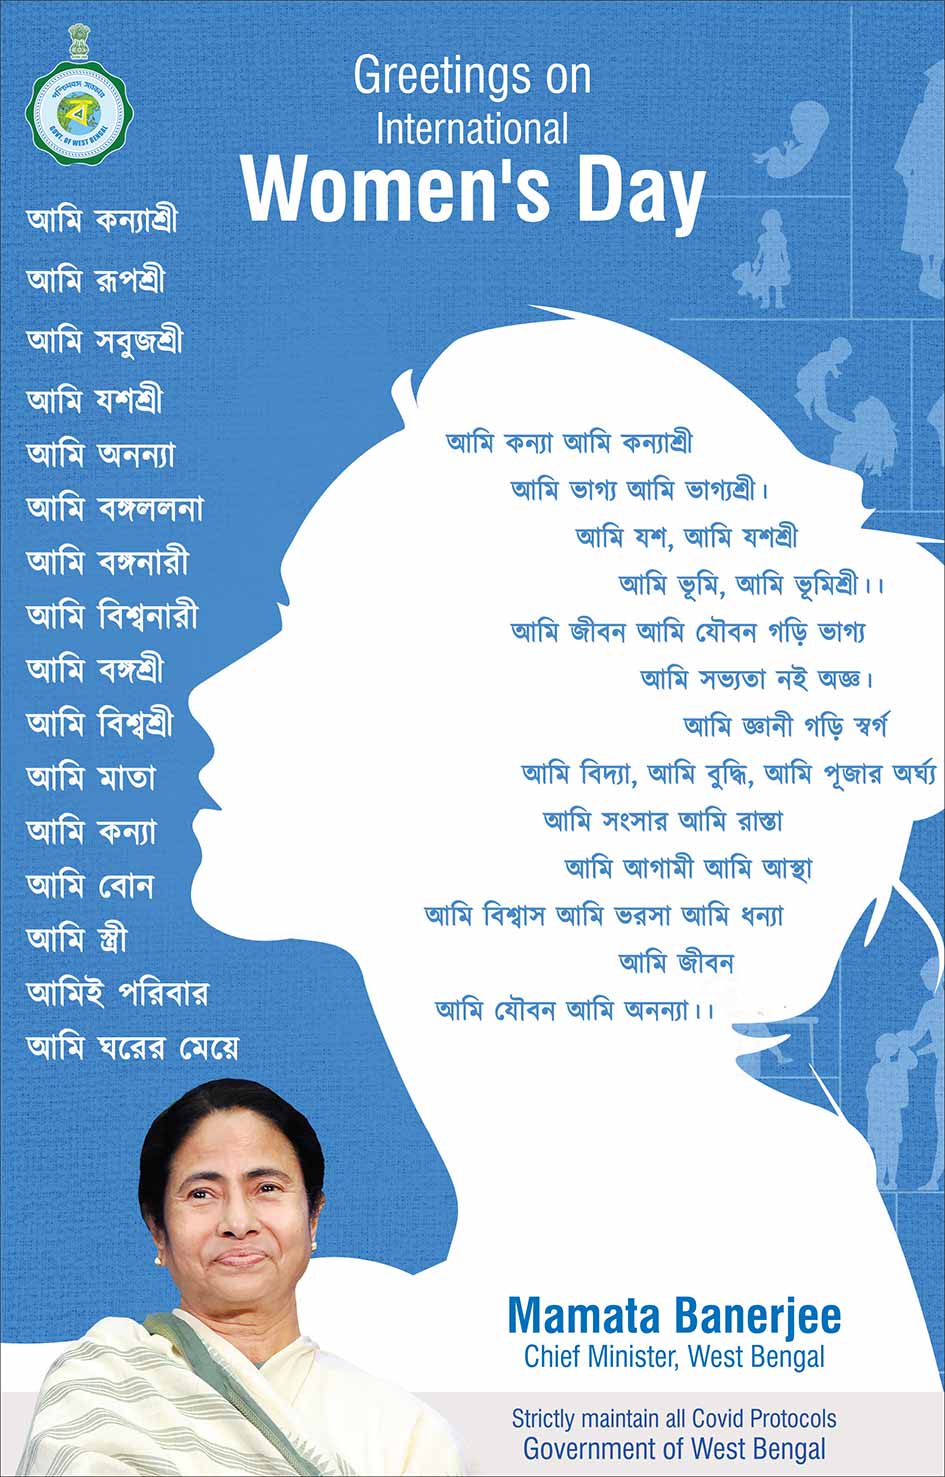 পশ্চিমবঙ্গ সরকার
ব
GOVT. OF WEST BENGAL
Greetings on
International
Women's Day
আমি কন্যাশ্রী
আমি রূপশ্রী
আমি সবুজশ্রী
আমি যশশ্রী
আমি অনন্যা
আমি বঙ্গললনা
আমি বঙ্গনারী
আমি বিশ্বনারী
আমি বঙ্গশ্রী
আমি বিশ্বশ্রী
আমি মাতা
আমি কন্যা
আমি বোন
আমি স্ত্রী
আমিই পরিবার
আমি ঘরের মেয়ে
আমি কন্যা আমি কন্যাশ্রী
আমি ভাগ্য আমি ভাগ্যশ্রী।
আমি যশ, আমি যশশ্রী
আমি ভূমি, আমি ভূমিশ্রী।।
আমি জীবন আমি যৌবন গড়ি ভাগ্য
আমি সভ্যতা নই অজ্ঞ।
আমি জ্ঞানী গড়ি স্বর্গ
আমি বিদ্যা, আমি বুদ্ধি, আমি পূজার অর্ঘ্য
আমি সংসার আমি রাস্তা
আমি আগামী আমি আস্থা
আমি বিশ্বাস আমি ভরসা আমি ধন্যা
আমি জীবন
আমি যৌবন আমি অনন্যা।।
Mamata Banerjee
Chief Minister, West Bengal
Strictly maintain all Covid Protocols
Government of West Bengal